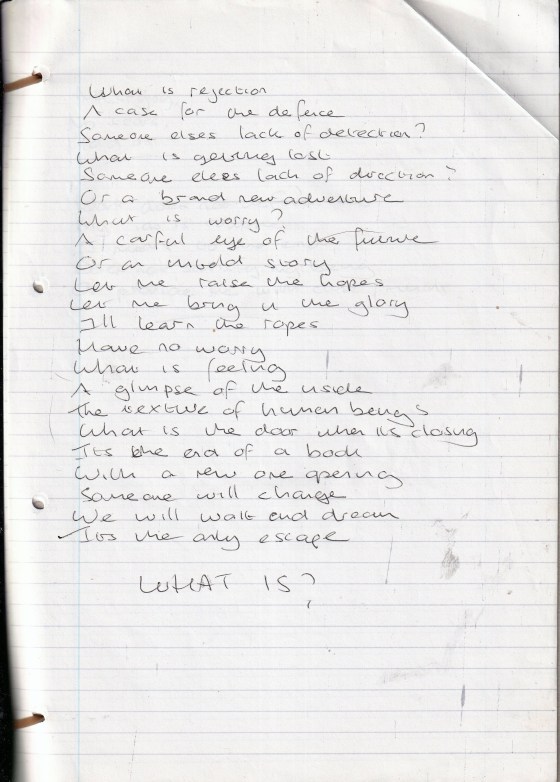 What is rejection
A case for the defence
Someone elses lack of detection?
What is getting lost
Someone elses lack of direction?
Or a brand new adventure
What is worry?
A carful eye of the future
Or an untold story
Let me raise the hopes
Let me bring in the glory
I'll learn the ropes
Have no worry
What is feeling
A glimpse of the inside
The texture of human beings
What is the door when its closing
Its the end of a book
With a new one opening
Someone will change
We will wait and dream
Its the only escape
WHAT IS?